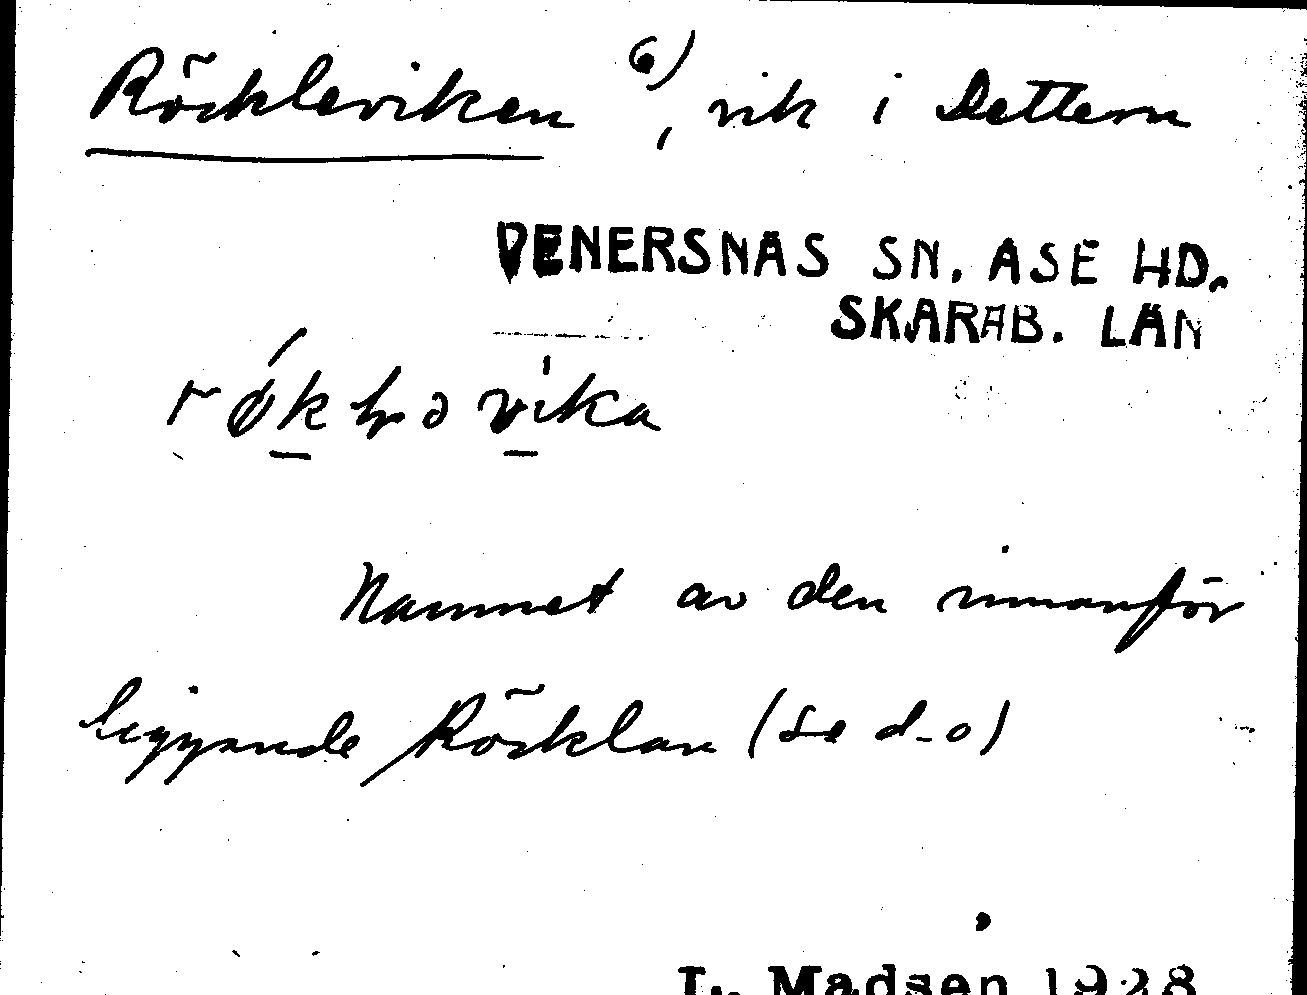 Röckleviken 6), vik i Dettern
VENERSNÄS SN. ÅSE HD.
SKARAB. LÄN
Namnet av den innanför
liggande Röcklan (se d-o)
L. Madsen 1928